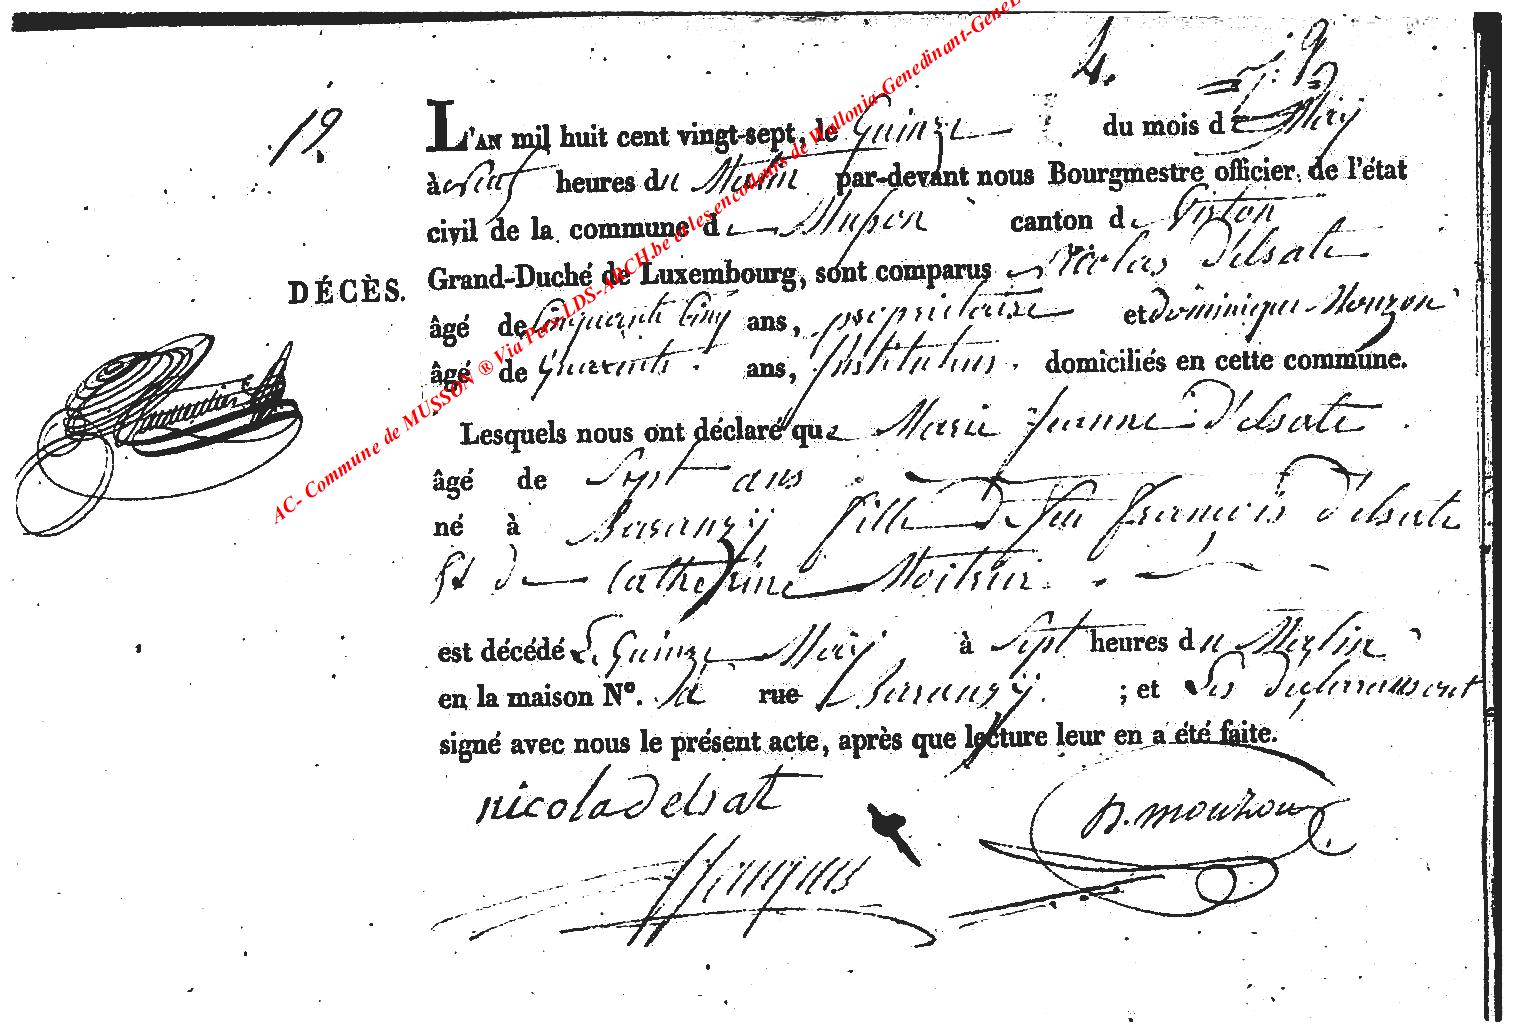 4.
12
L'AN mil huit cent vingt-sept, le Quinze du mois de Maÿ
à heures du Matin par-devant nous Bourgmestre officier de l'état
civil de la commune de Musson canton de Virton
DÉCÈS.
Grand-Duché de Luxembourg, sont comparus Nicolas Delsate
âgé de Cinquante Cinq ans, propriétaire et dominique Mouzon
âgé de Quarante ans, Instituteur domiciliés en cette commune.
Lesquels nous ont déclaré que Marie Jeanne Delsate
âgé de Sept ans
né à Baranzÿ fille de feu françois Delsate
Et de Catherine
est décédé Le Quinze Maÿ à Sept heures du Matin
en la maison N°. rue Baranzÿ ; et Les déclarans ont
signé avec nous le présent acte, après que lecture leur en a été faite.
nicola Delsat
D. mouzon
AC- Commune de MUSSON ® Via Pers-LDS-ARCH.be et les encodeurs de Wallonia-Genedinant-GeneL